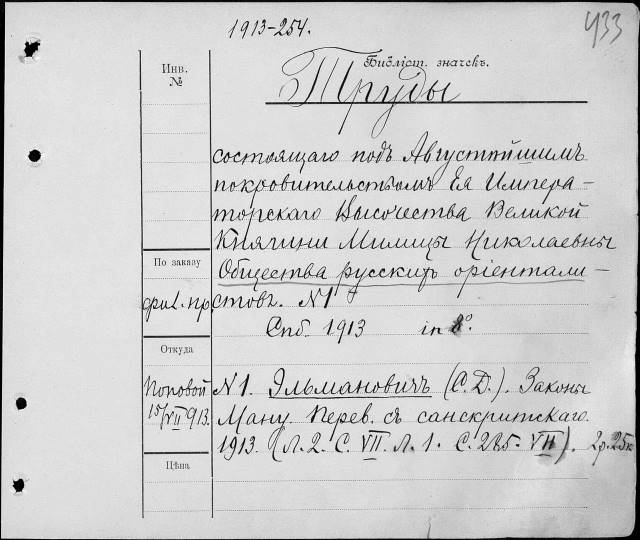 1913-254.
433
Библіот. значекъ.
Инв.
№
Труды
состоящаго подъ Августѣйшимъ
покровительствомъ Ея Импера-
торскаго Высочества Великой
Княгини Милицы Николаевны
По заказу
Общества русскихъ оріентали-
стовъ. N1
Спб. 1913 in 8º.
Откуда
Поповой
15/VII 913.
N1. Эльмановичъ (С.Д.). Законы
Ману. Перев. съ санскритскаго.
1913. (Л. 2. С. VII. Л. 1. С. 225. VII). 2р. 25к
Цѣна